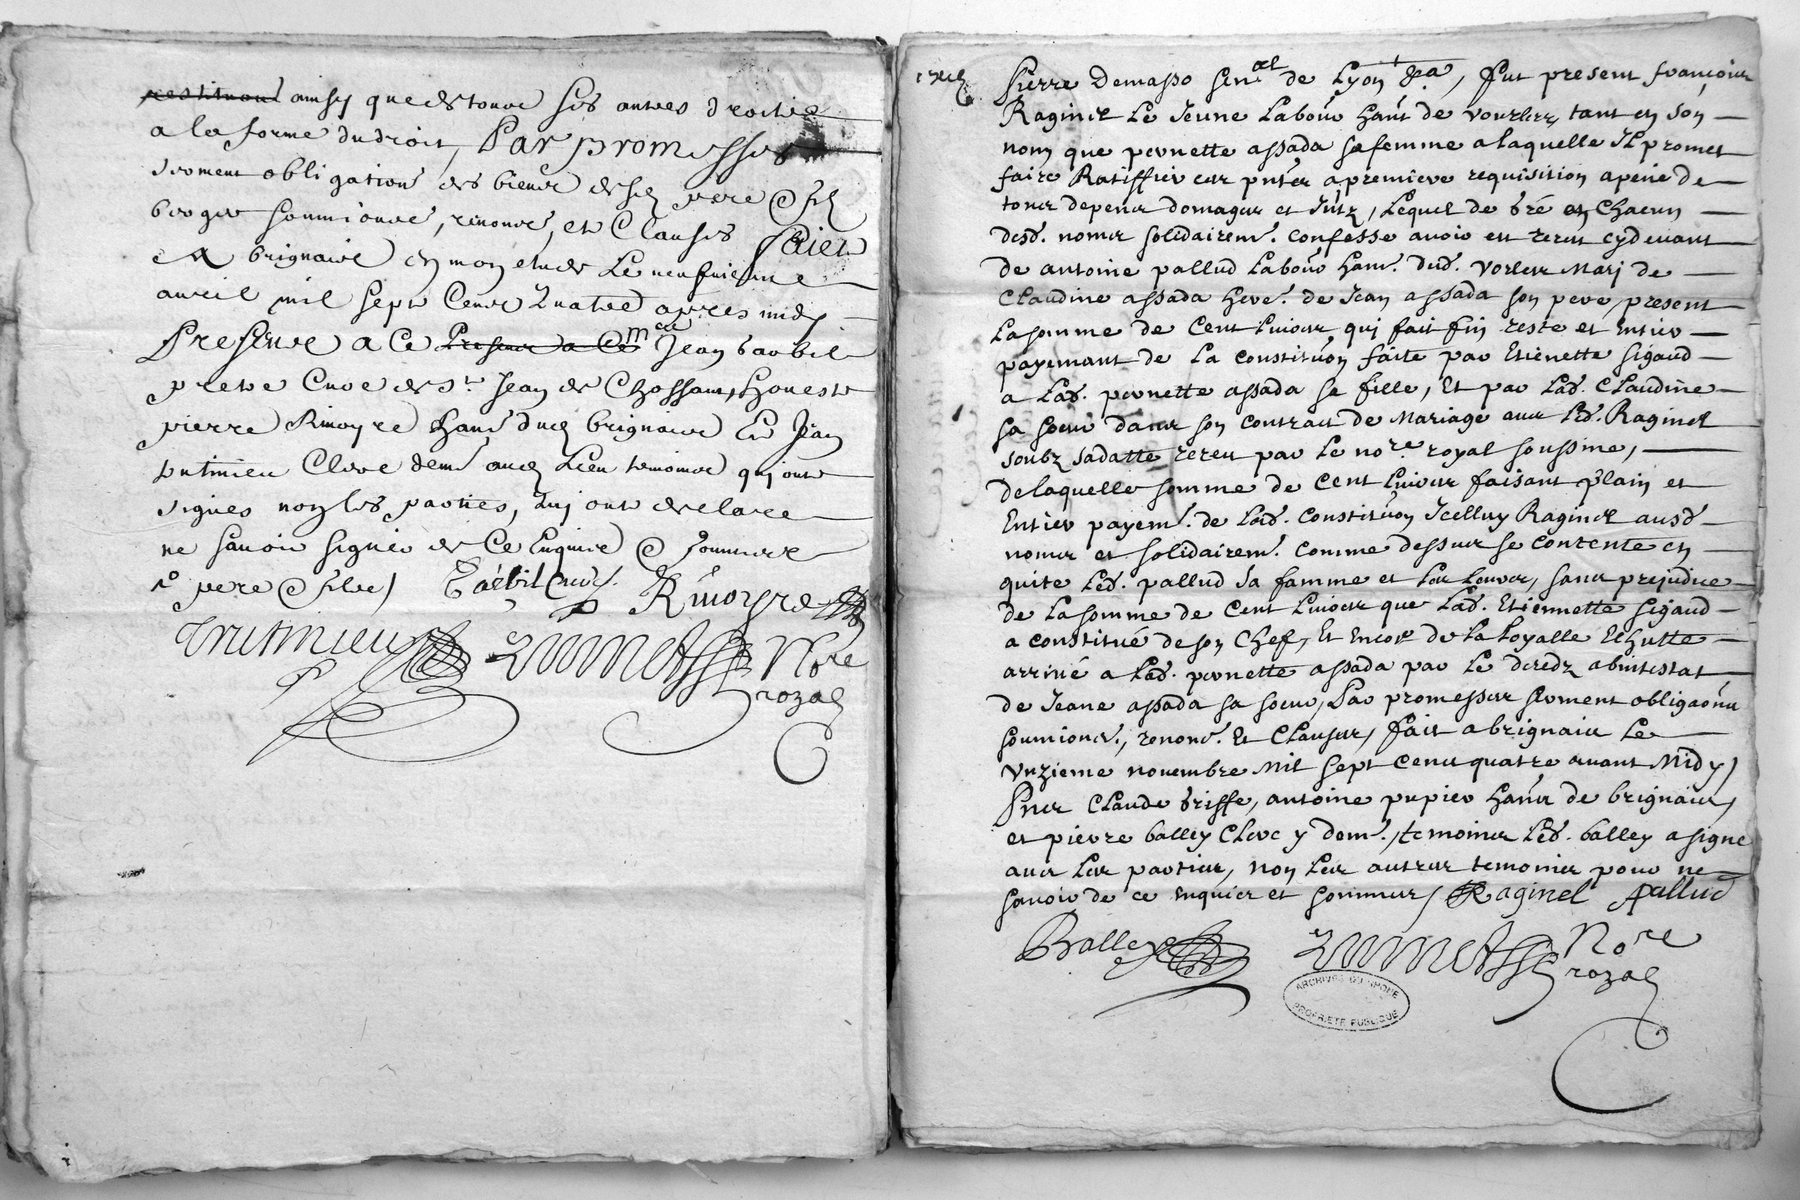 restitu͠on ainsy que de toute ses autres droitz
a la forme du droit, Par promesses
serment obligations des biens desd. pere & fils
soumi͠ons, renonce, et Clauses Fait
a brignais en mon etude Le neufvieme
avril mil sept Cent Quatre apres midy
Presence a Ce Presence a Ce mre Jean tarbil
pretre Curé de St. Jean de Chossant, honeste
pierre Rivoyre hant. dud. brignais Et Jean
trutmieu Clerc demt. aud. Lieu temoins qui ont
signés non les parties, qui ont declaré
ne savoir signer de Ce Enquis & sommes
pere & fils /
Tarbil Curé Rivoyre
Trutmieu
Nore
royal
Pierre Demasso Senal de Lyon &a, fut present françois
Raginel Le Jeune Labour hant. de vourles, tant en son
nom que pernette assada sa femme a laquelle Il promet
faire Ratiffier ces pntes a premiere requisition a peine de
tous depens domages et Intz, Lequel de gré en chacun
desd. noms solidairemt. confesse avoir eu receu cy devant
de antoine pallud Labour hant. dud. vorles Mari de
Claudine assada here. de Jean assada son pere, present
La somme de Cent Livres qui fait fin reste et Entier
payemant de La constitu͠on faite par Etienette Sigaud
a Lad. pernette assada sa fille, Et par Lad. Claudine
sa soeur dans son contract de Mariage avec Led. Raginel
soubz sa datte receu par Le nore. royal soussine,
de laquelle somme de Cent Livres faisant plain et
Entier payemt. de Lad. constitu͠on Icelluy Raginel ausd.
noms et solidairemt. comme dessus se contente en
quite Led. pallud sa famme et Les Leurs, sans prejudice
de La somme de Cent Livres que Lad. Etiennette Sigaud
a constitué de son Chef, Et Encore de La Loyalle Echutte
arrivé a Lad. pernette assada par Le deredz abintestat
de Jeane assada sa soeur, Par promesses serment obligaons
soumions., renonc. Et Clauses, fait a brignais Le
Unzieme novembre Mil sept Cent quatre avant Midy /
Pnce Claude brisse, antoine pupier hants de brignais,
et pierre balley Clerc y demt., temoins Led. balley a signe
avec Les parties, Non Les autres temoins pour ne
savoir de ce enquis et sommes / Raginel APallud
Balley
Nore
royal
ARCHIVES DU RHONE
PROPRIETE PUBLIQUE